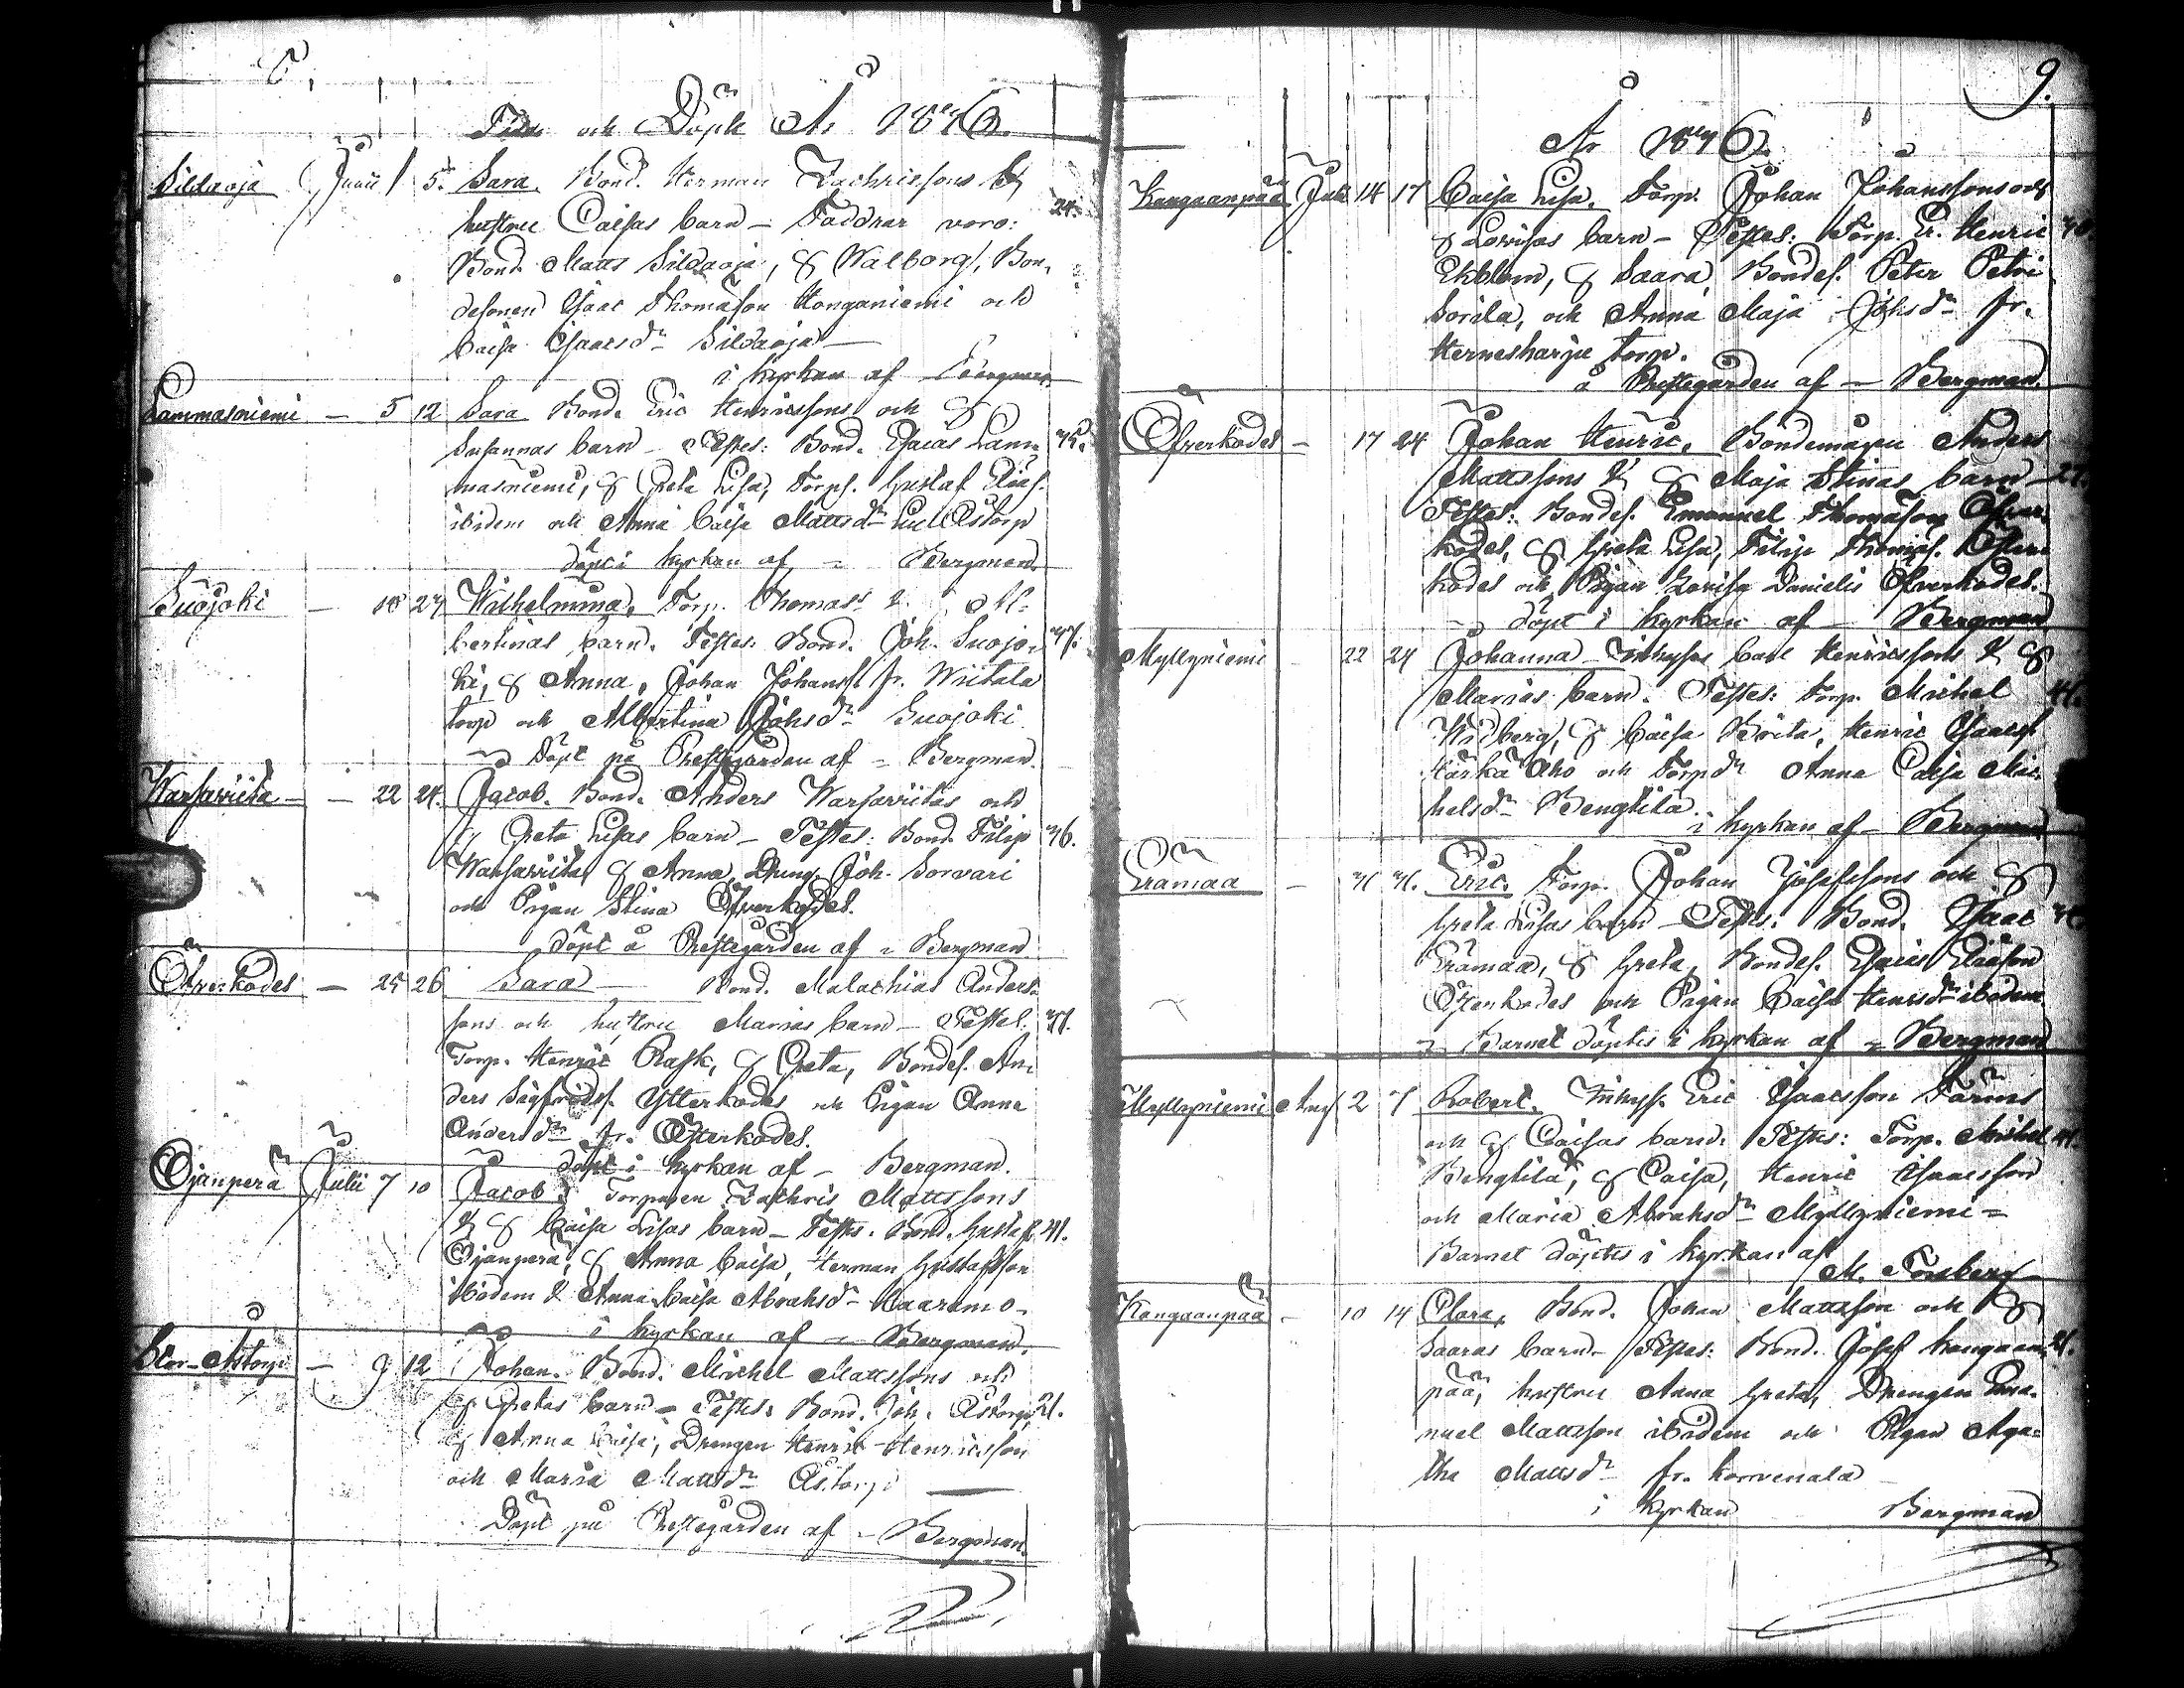 Födde och Döpte År 1846.
Sildaoja Junii 1 5. Sara. Bond. Herman Zachrissons &
hustru Caisas barn – Faddrar voro: 24.
Bond. Matts Sildaoja, & Walborg, Bon-
desonen Isaac Thomasson Honganiemi och
Caisa Isaacsdr Sildaoja –
i kyrkan af Bergman
Lammasniemi – 5 12 Sara Bond. Eric Henricssons och
Susannas barn – Testes: Bond. Esaias Lam-
masniemi, & Greta Lisa, Torps. Gustaf Eliæs.
ibidem och Anna Caisa Mattsdr Åstorp
döpt i kyrkan af – Bergman.
Suojoki – 24 Wilhelmina, Torp. Thomas & Al-
bertinas barn. Testes: Bond. Joh. Suojo-
ki, & Anna, Johan Johanss. fr. Wiitala
torp och Albertina Johsdr Suojoki
Döpt på Prestegården af – Bergman.
Warsawiita – 22 24. Jacob. Bond. Anders Warsawiitas och
Greta Lisas barn – Testes: Bond. Filip 36.
Warsawiita & Anna, Dreng. Joh. Sorvari
och Pigan Stina Öfverkodes.
döpt å Prestegården af – Bergman
Öfverkodes – 25 26 Sara – Bond. Malachias Anders-
sons och hustru Marias barn – Testes.
Torp. Henric Rask, & Greta, Bondes. An-
ders Sigfrids. Ytterkodes och Pigan Anna
Andersdr fr. Öfverkodes.
döpt i kyrkan af – Bergman.
Ojanperä Julii 7 10 Jacob. Torparen Zachris Mattssons
& Caisa Lisas barn – Testes. Bond. Gustaf 41.
Ojanperä, & Anna Caisa, Herman Gustafsson
ibidem & Anna Caisa Abrahsdr Kaaramo –
i kyrkan af – Bergman.
Stor-Åstorp – 9 12 Johan. Bond. Michel Mattssons och
Gretas barn – Testes: Bond. Joh. Åstorp 21.
& Anna Caisa, Drengen Henric Henricsson
och Maria Mattsdr Åstorp
Döpt på Prestegården af – Bergman.
9.
År 1846.
Kangaanpää Julii 14 17 Caisa Lisa. Torp. Johan Johanssons och
& Lovisas barn – Testes: Torp. Er. Henric
Ekblom, & Saara, Bondes. Peter Petri
Sorila, och Anna Maja Johsdr fr.
Herneharju torp.
å Prestegården af – Bergman.
Öfverkodes – 17 24 Johan Henric. Bondemågen Anders
Mattssons & Maja Stinas barn 27.
Testes: Bondes. Emanuel Thomasson Öfver-
kodes, & Greta Lisa, Filip Thomas. Öfver-
kodes och Pigan Lovisa Danielis Öfverkodes.
döpt i kyrkan af – Bergman
Myllyniemi – 22 24 Johanna – Inhyses Carl Henricssons & &
Marias barn. Testes: Torp. Michel 41.
Widberg, & Caisa Brita, Henric Isaacss.
Härkä Aho och Torpdr Anna Caisa Mic-
helsdr Bengtilä.
i kyrkan af – Bergman
Erämaa – 31 31. Eric. Torp. Johan Josefssons och &
Greta Lisas barn – Testes: Bond. Isaac
Erämaa, & Greta, Bondes. Esaias Eliæson
Öfverkodes och Pigan Caisa Henrsdr ibidem
Barnet döptes i kyrkan af – Bergman
Myllyniemi Aug. 2 7 Robert. Inhys. Eric Isaacsson Färms
och & Caisas barn. Testes: Torp. Michel 41.
Bengtilä, & Caisa, Henric Isaacsson
och Maria Abrahsdr Myllyniemi –
Barnet döptes i kyrkan af
M. Forsberg
Kangaanpää – 10 14 Clara, Bond. Johan Mattsson och &
Saaras barn – Testes: Bond. Josef Kangaan- 21.
pää, hustru Anna Greta, Drengen Ema-
nuel Mattsson ibidem och Pigan Aga-
tha Mattsdr fr. Korvenala –
i kyrkan Bergman